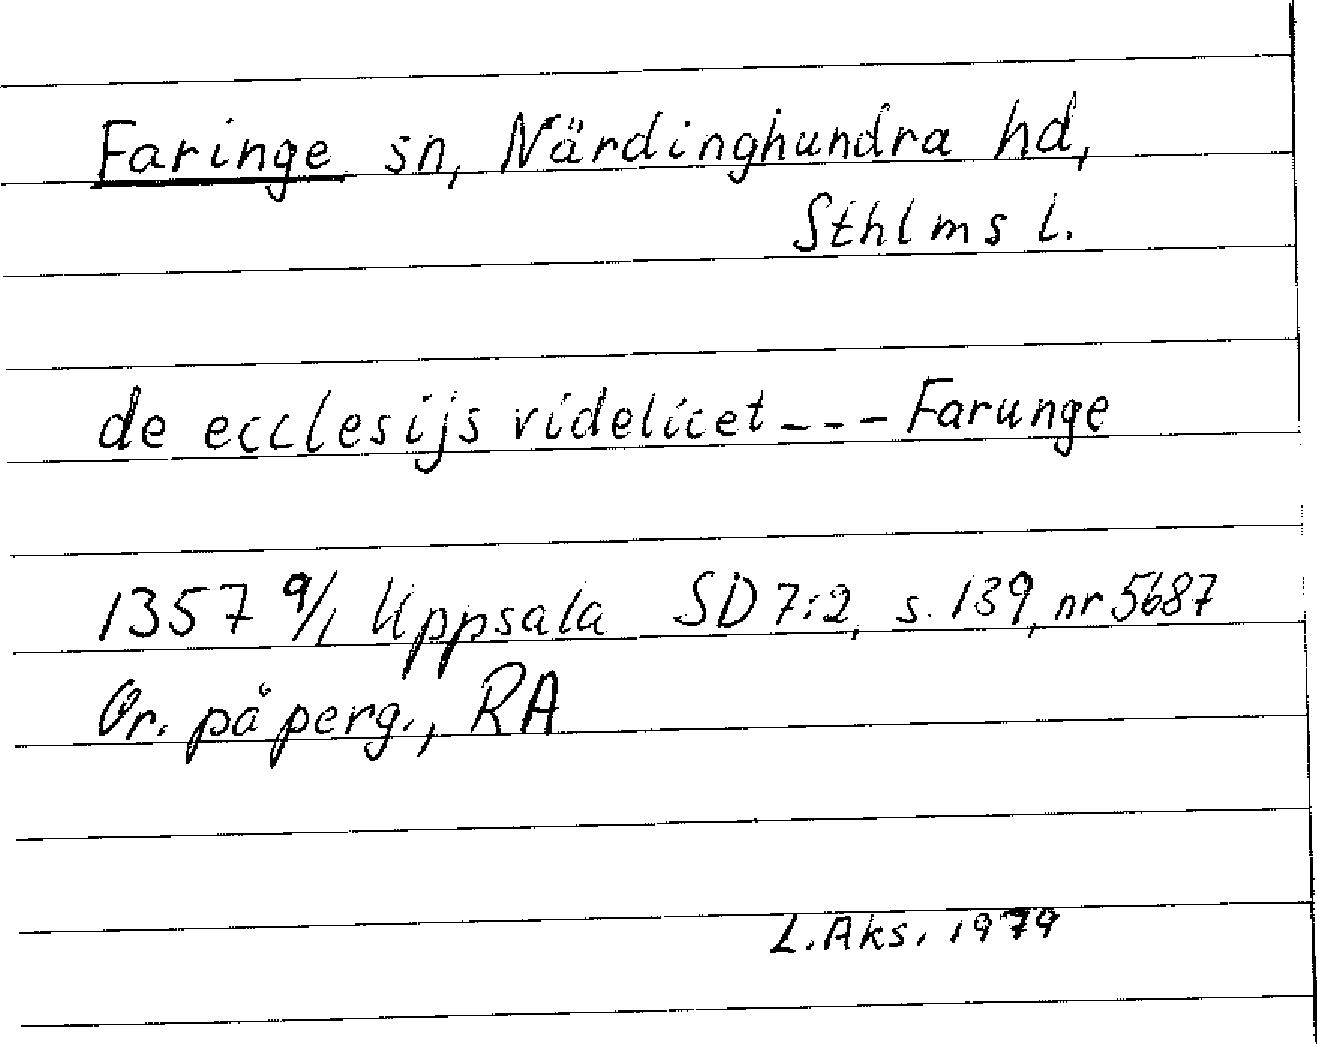 Faringe sn, Närdinghundra hd,
Sthlms l.
de ecclesijs videlicet --- Farunge
1357 9/1 Uppsala SD 7:2, s. 139, nr 5687
Or. på perg., RA
L. Aks. 1979